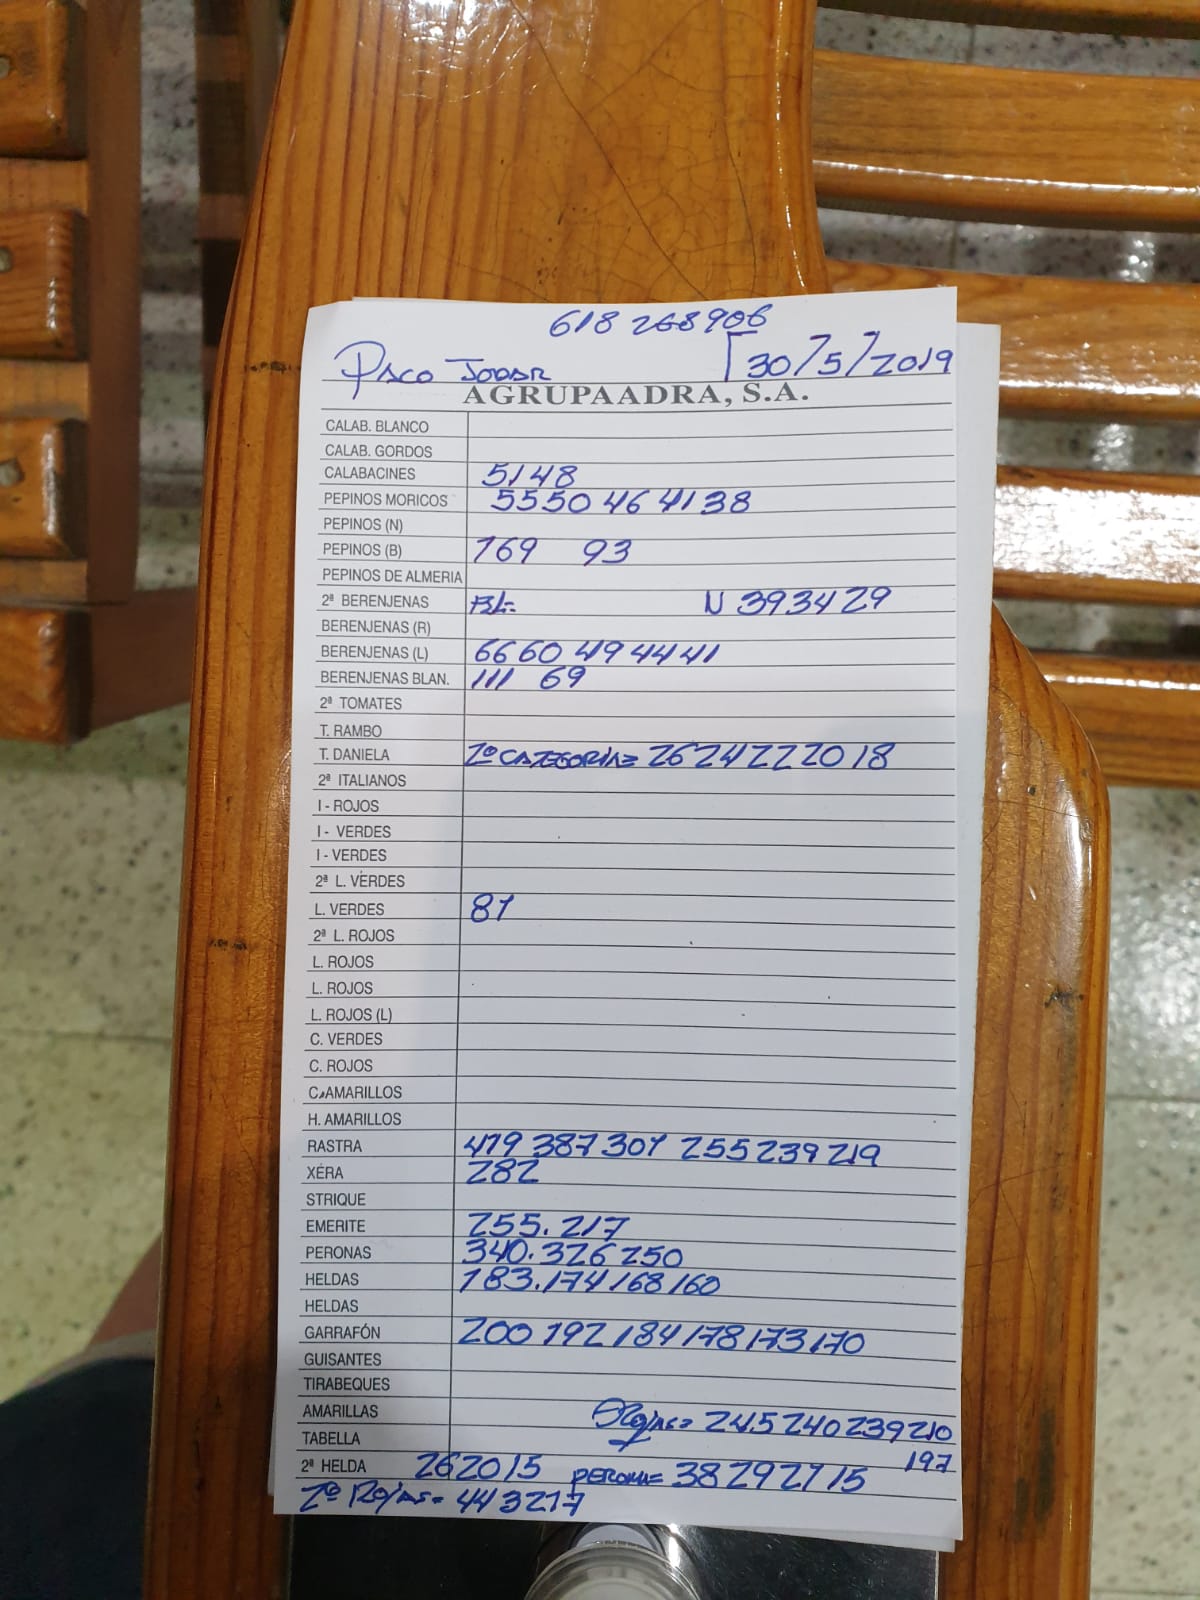 618 268906
Paco Jodar 30/5/2019
AGRUPAADRA, S.A.
CALAB. BLANCO
CALAB. GORDOS
CALABACINES 51 48
PEPINOS MORICOS 55 50 46 41 38
PEPINOS (N)
PEPINOS (B) 169 93
PEPINOS DE ALMERIA
2ª BERENJENAS BL- N 39 34 29
BERENJENAS (R)
BERENJENAS (L) 66 60 49 44 41
BERENJENAS BLAN. 111 69
2ª TOMATES
T. RAMBO
T. DANIELA 2ª CATEGORIA= 26 24 22 20 18
2ª ITALIANOS
I - ROJOS
I - VERDES
I - VERDES
2ª L. VERDES
L. VERDES 81
2ª L. ROJOS
L. ROJOS
L. ROJOS
L. ROJOS (L)
C. VERDES
C. ROJOS
C. AMARILLOS
H. AMARILLOS
RASTRA 419 387 301 255 239 219
XÉRA 282
STRIQUE
EMERITE 255. 217
PERONAS 340. 326 250
HELDAS 183. 174 168 160
HELDAS
GARRAFÓN 200 192 184 178 173 170
GUISANTES
TIRABEQUES
AMARILLAS Rojas= 245 240 239 210
TABELLA 197
2ª HELDA 26 20 15 PERONA= 38 29 21 15
2ª Rojas= 44 32 17